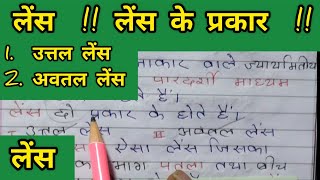 लेंस !! लेंस के प्रकार !!
1. उत्तल लेंस
2. अवतल लेंस
वाले ज्यामितीय
पारदर्शी माध्यम
होते हैं।
लेंस दो प्रकार के होते हैं।
उत्तल लेंस II अवतल लेंस
ऐसा लेंस जिसका
भाग पतला तथा बीच
लेंस